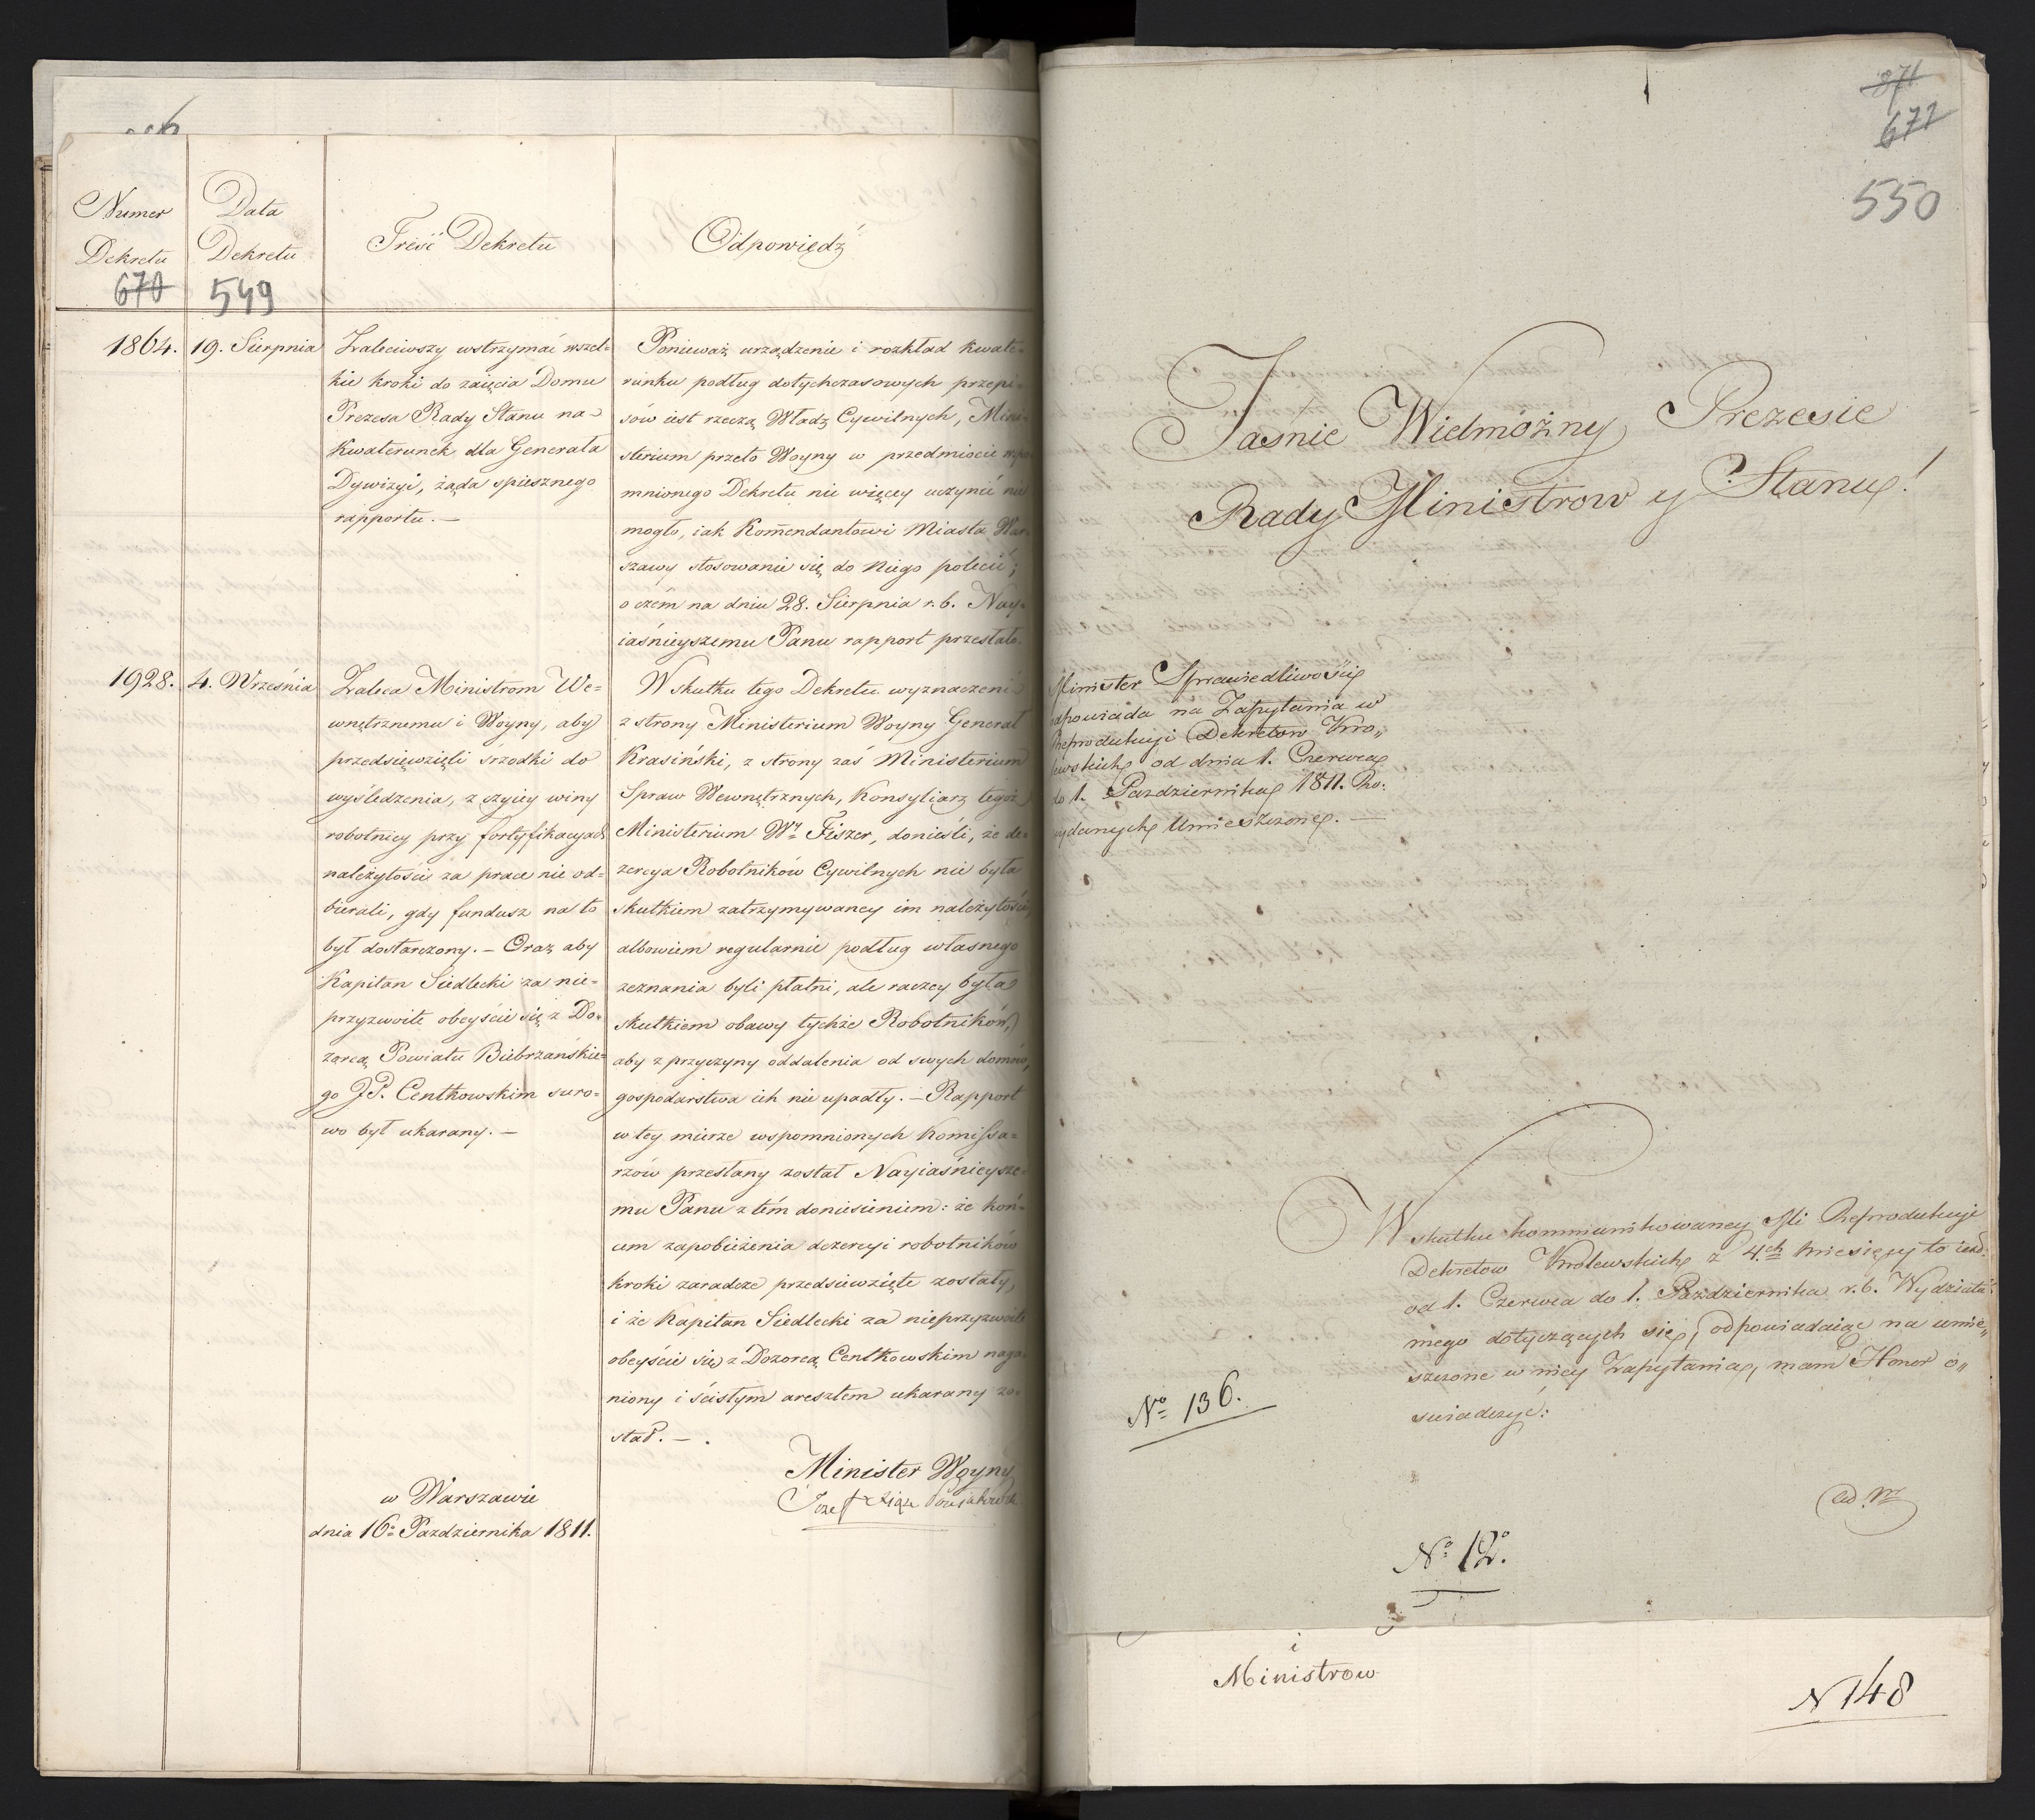 Numer
Dekretu
Data
Dekretu
Treść Dekretu
Odpowiedź
670
549
1864.
19. Sierpnia
Zaleciwszy wstrzymać wszel=
kie kroki do zaięcia Domu
Prezesa Rady Stanu na
Kwaterunek dla Generała
Dywizyi, żąda spiesznego
rapportu. —
Ponieważ urządzenie i rozkład kwate=
runku podług dotychczasowych przepi=
sów iest rzeczą Władz Cywilnych, Mini=
sterium przeto Woyny w przedmiocie wspo
mnionego Dekretu nie więcey uczynić nie
mogło, iak Kommendantowi Miasta War=
szawy stosowanie się do niego polecić;
o czém na dniu 28. Sierpnia r. b. Nay=
iaśnieyszemu Panu rapport przesłało.
1928.
4. Września
Zaleca Ministrom We=
wnętrznemu i Woyny, aby
przedsięwzięli środki do
wyśledzenia, z czyiey winy
robotnicy przy fortyfikacyach
należytości za prace nie od=
bierali, gdy fundusz na to
był dostarczony. — Oraz aby
Kapitan Siedlecki za nie=
przyzwoite obeyście się z Do=
zorcą Powiatu Biebrzańskie=
go J. P. Centkowskim suro=
wo był ukarany. —
W skutku tego Dekretu wyznaczeni
z strony Ministerium Woyny Generał
Krasiński, z strony zaś Ministerium
Spraw Wewnętrznych, Konsyliarz tegoż
Ministerium Wy Fiszer, donieśli, że de=
zercya Robotników Cywilnych nie była
skutkiem zatrzymywaney im należytości,
albowiem regularnie podług własnego
zeznania byli płatni, ale raczey była
skutkiem obawy tychże Robotników,
aby z przyczyny oddalenia od swych domów,
gospodarstwa ich nie upadły. — Rapport
w tey mierze wspomnionych Komissa=
rzów przesłany został Nayiaśnieysze=
mu Panu z tém doniesieniem: że koń=
cem zapobieżenia dezercyi robotników
kroki zaradcze przedsiewzięte zostały,
i że Kapitan Siedlecki za nieprzyzwoite
obeyście się z Dozorcą Centkowskim naga=
niony i ścisłym aresztem ukarany zo=
stał. —
w Warszawie
dnia 16º Pazdziernika 1811.
Minister Woyny
Józef Xiąże Poniatowski
871
671
550
Jaśnie Wielmożny Prezesie
Rady Ministrow y Stanu!
Minister Sprawiedliwości
odpowiada na Zapytania w
Reprodukcyi Dekretow Kro„
lewskich od dnia 1. Czerwca
do 1. Pazdziernika 1811. Ro:
wydanych Umieszczone. —
W skutku kommunikowaney Mi Reprodukcyi
Dekretow Krolewskich z 4.ch miesięcy to iest:
od 1. Czerwca do 1. Pazdziernika r. b. Wydziału
mego dotyczących się, odpowiadaiąc na umie„
szczone w niey Zapytania, mam Honor o„
świadczyć:
No 136.
Ad. Nr
No 12o.
i
Ministrow
N 148